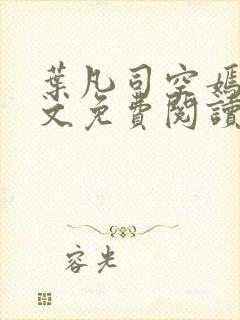 葉凡司空嫣
文免費閱讀
容光